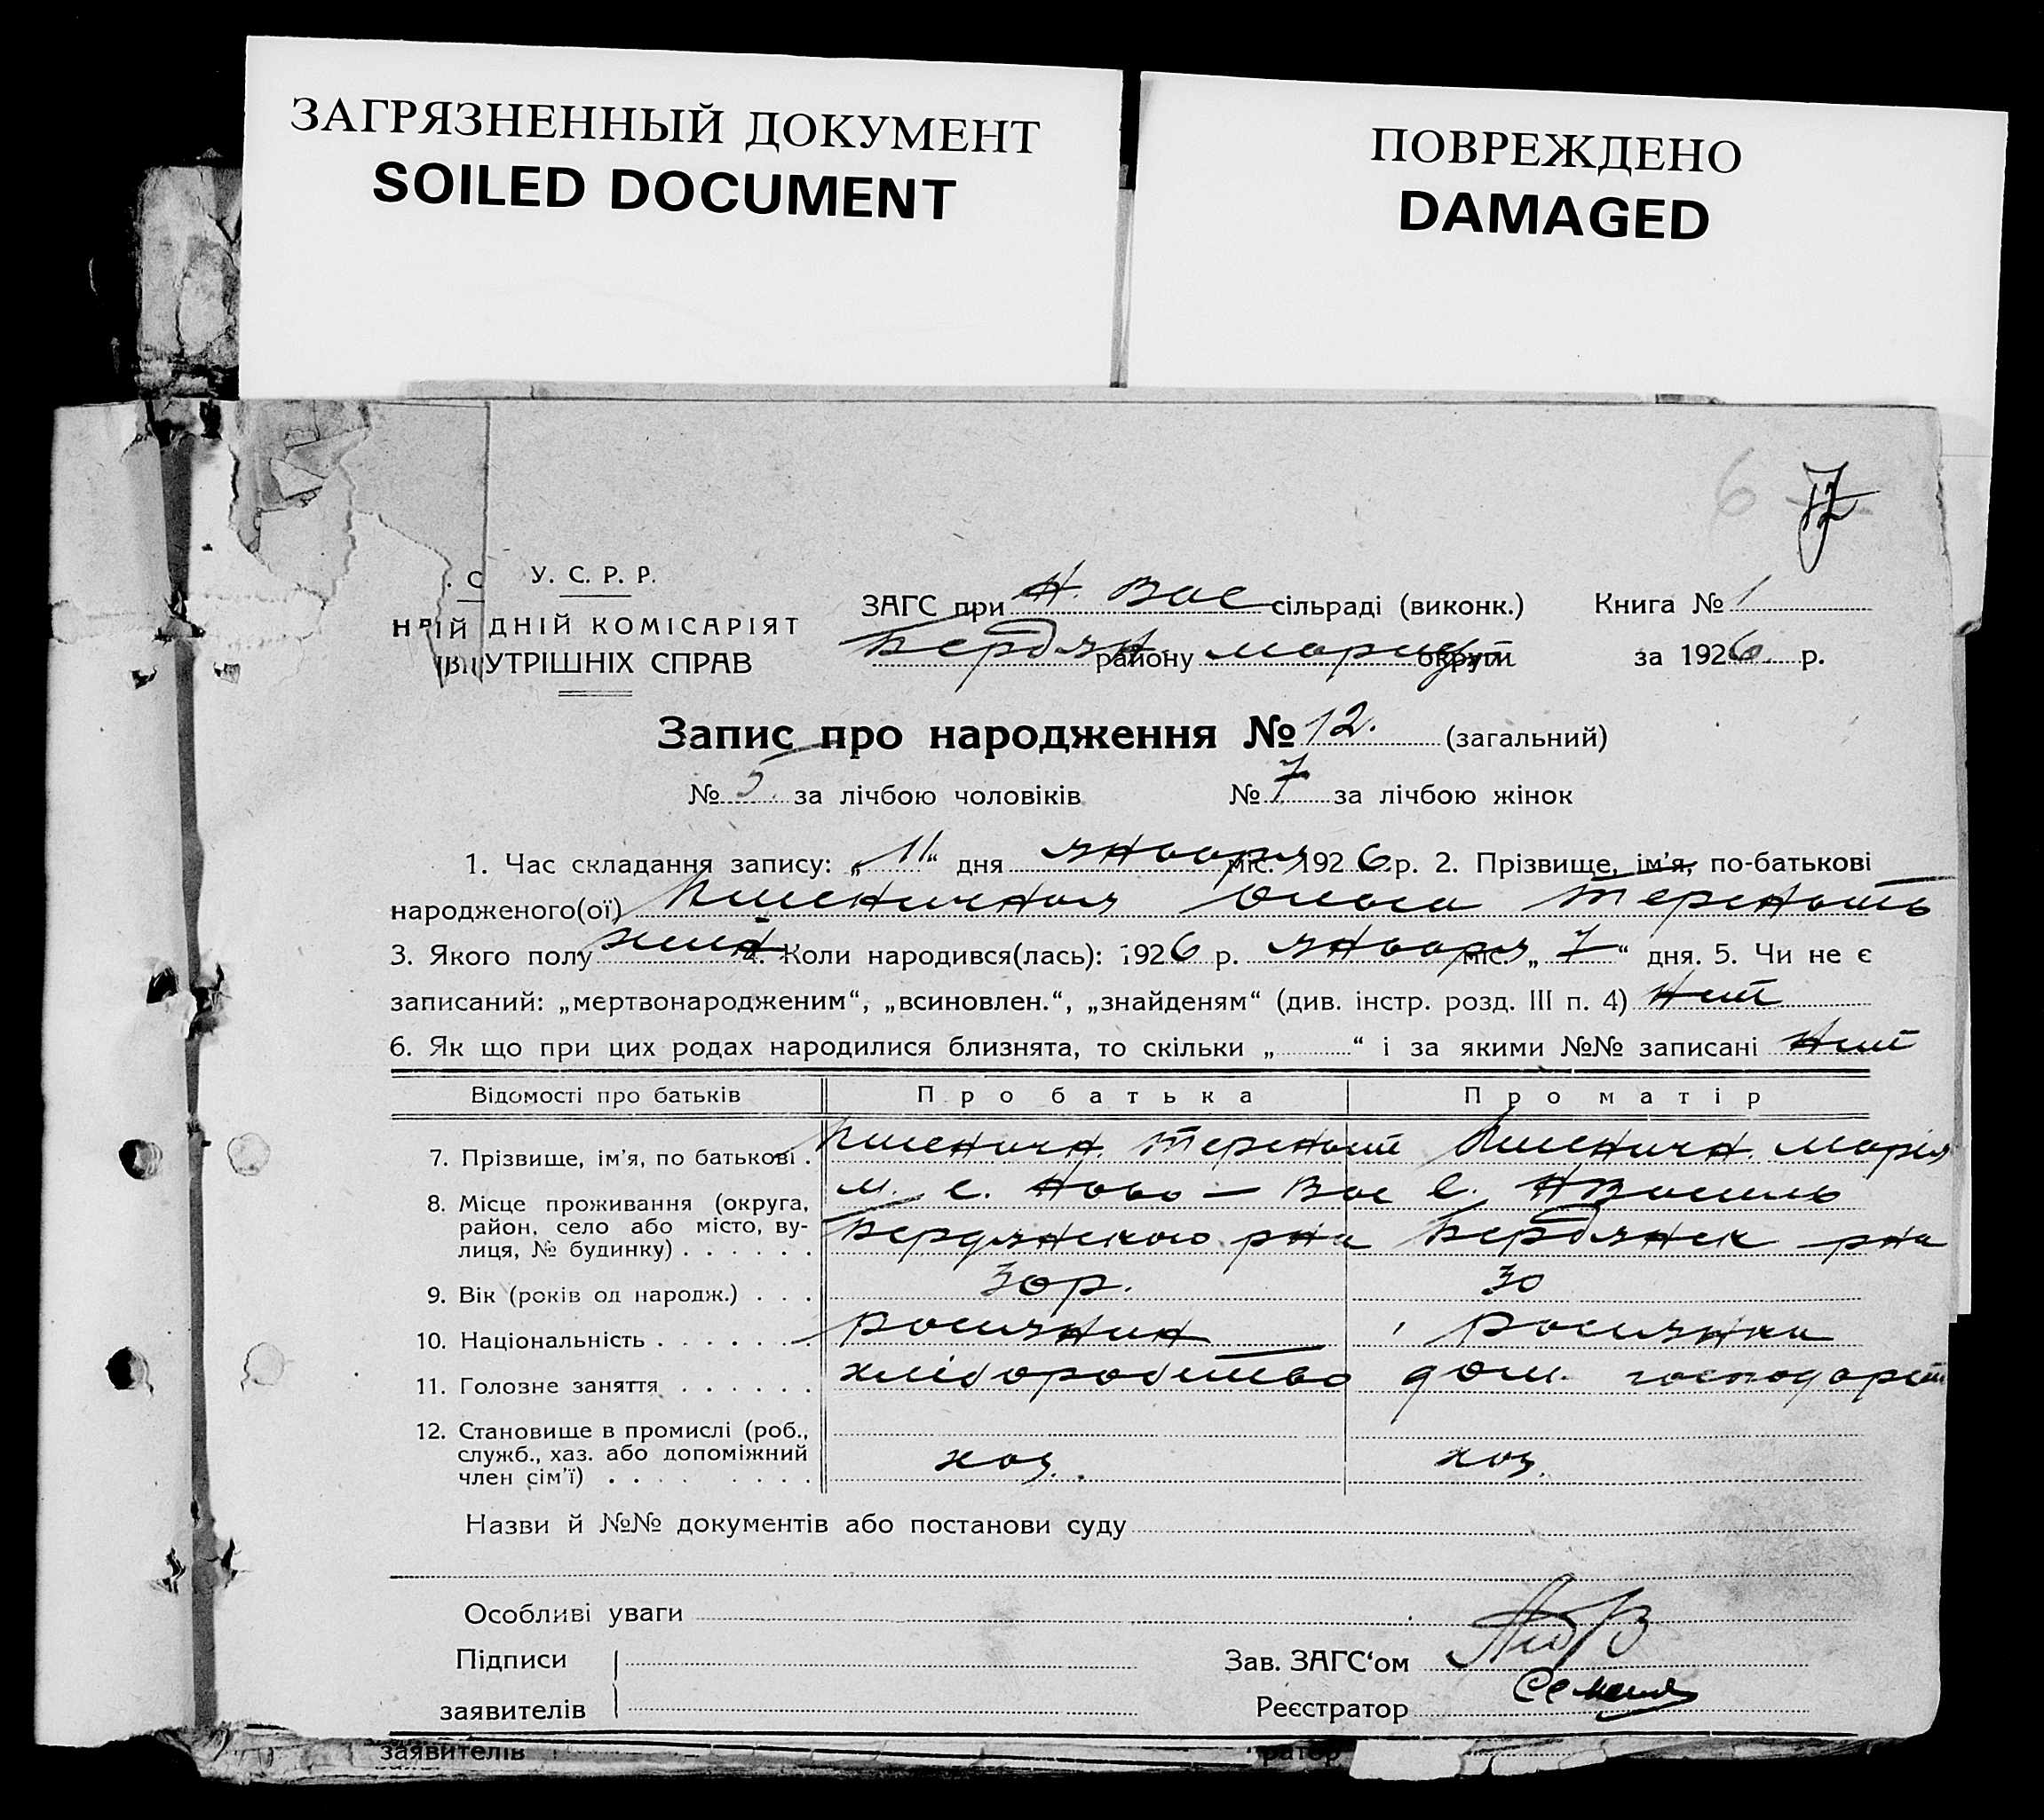 ЗАГРЯЗНЕННЫЙ ДОКУМЕНТ
SOILED DOCUMENT
ПОВРЕЖДЕНО
DAMAGED
6
У. С. Р. Р.
ДНІЙ КОМІСАРІЯТ
УТРІШНІХ СПРАВ
ЗАГС при Н. Вас сільраді (виконк.) Книга № 1
Бердян району Мариуп округи за 1926 р.
Запис про народження № 12. (загальний)
№ 5 за лічбою чоловіків № 7 за лічбою жінок
1. Час складання запису: „11“ дня января міс. 1926 р. 2. Прізвище, ім’я, по-батькові
народженого(ої) Пшеничная Ольга Терентьевна
3. Якого полу жін 4. Коли народився(лась): 1926 р. января міс. „7“ дня. 5. Чи не є
записаний: „мертвонародженим“, „всиновлен.“, „знайденям“ (див. інстр. розд. III п. 4) нет
6. Як що при цих родах народилися близнята, то скільки „ “ і за якими №№ записані нет
Відомості про батьків Про батька Про матір
7. Прізвище, ім’я, по батькові . Пшеничн. Терентий Пшеничн. Марія
8. Місце проживання (округа, м. с. Ново-Вас с. НВасиль
район, село або місто, ву-
лиця, № будинку) . . . . . . Бердянского рна Бердянск рна
9. Вік (років од народж.) . . . 30 р. 30
10. Національність . . . . . . . Росиянин Росиянка
11. Головне заняття . . . . . . хліборобство дом. господарст
12. Становище в промислі (роб.,
служб., хаз. або допоміжний хоз. хоз.
член сім’ї) . . . . . . . . .
Назви й №№ документів або постанови суду
Особливі уваги
Підписи
заявителів
Зав. ЗАГС‘ом
Реєстратор
заявителів
ратор